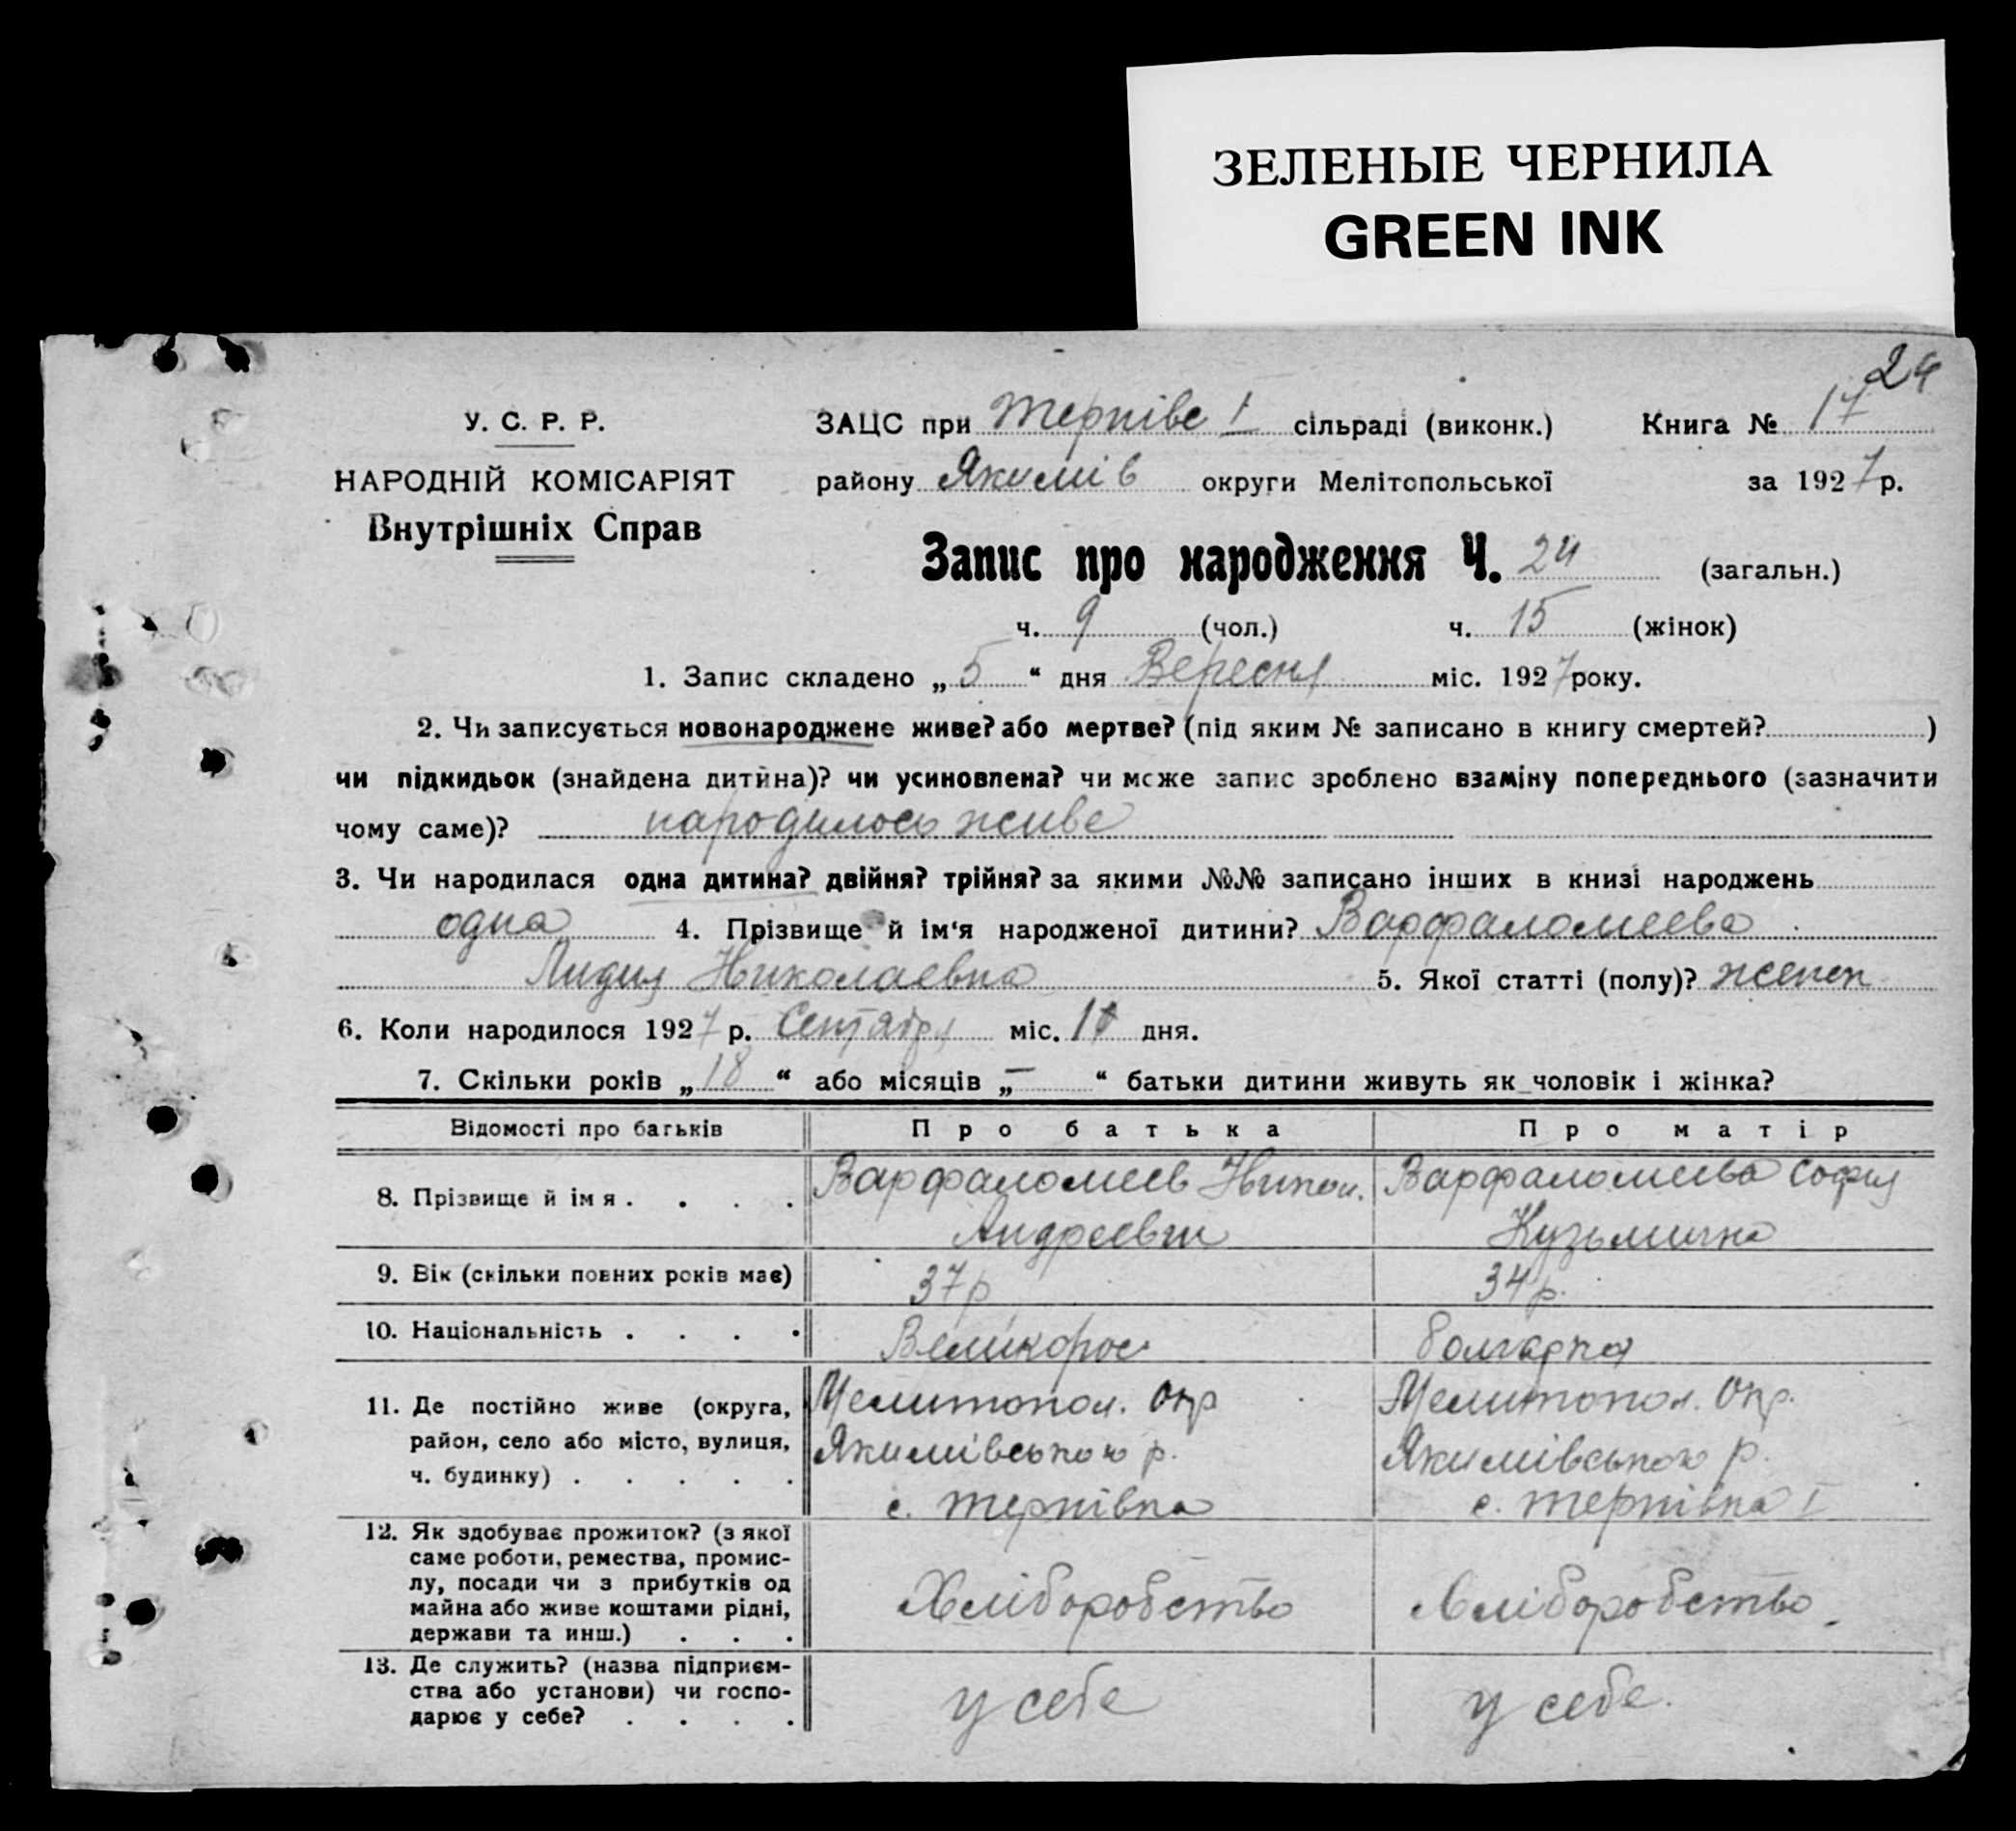 ЗЕЛЕНЫЕ ЧЕРНИЛА
GREEN INK
24
У. С. Р. Р.
НАРОДНІЙ КОМІСАРІЯТ
Внутрішніх Справ
ЗАЦС при Терніве I сільраді (виконк.) Книга № 17
району Якимів округи Мелітопольської за 1927 р.
Запис про народження Ч. 24 (загальн.)
ч. 9 (чол.) ч. 15 (жінок)
1. Запис складено „ 5 “ дня Вересня міс. 1927 року.
2. Чи записується новонароджене живе? або мертве? (під яким № записано в книгу смертей? )
чи підкидьок (знайдена дитина)? чи усиновлена? чи може запис зроблено взаміну попереднього (зазначити
чому саме)? народилось живе
3. Чи народилася одна дитина? двійня? трійня? за якими №№ записано інших в книзі народжень
одна 4. Прізвище й ім‘я народженої дитини? Варфаломеева
Лидия Николаевна 5. Якої статті (полу)? женск
6. Коли народилося 1927 р. Сентября міс. 1 дня.
7. Скільки років „ 18 “ або місяців „ — “ батьки дитини живуть як чоловік і жінка?
Відомості про батьків Про батька Про матір
8. Прізвище й ім я . . . . Варфаломеев Никол. Варфаломеева София
Андреевич Кузьмична
9. Вік (скільки повних років має) 37 р 34 р.
10. Національність . . . . Великорос Болгарка
11. Де постійно живе (округа, Мелитопол. Окр Мелитопол. Окр.
район, село або місто, вулиця, Якимівського р. Якимівського р.
ч. будинку) . . . . . с. Тернівка с. Тернівка I
12. Як здобуває прожиток? (з якої
саме роботи, ремества, промис-
лу, посади чи з прибутків од
майна або живе коштами рідні, Хліборобство Хліборобство
держави та инш.) . . .
13. Де служить? (назва підприєм-
ства або установи) чи госпо- у себе у себе.
дарює у себе? . . . .